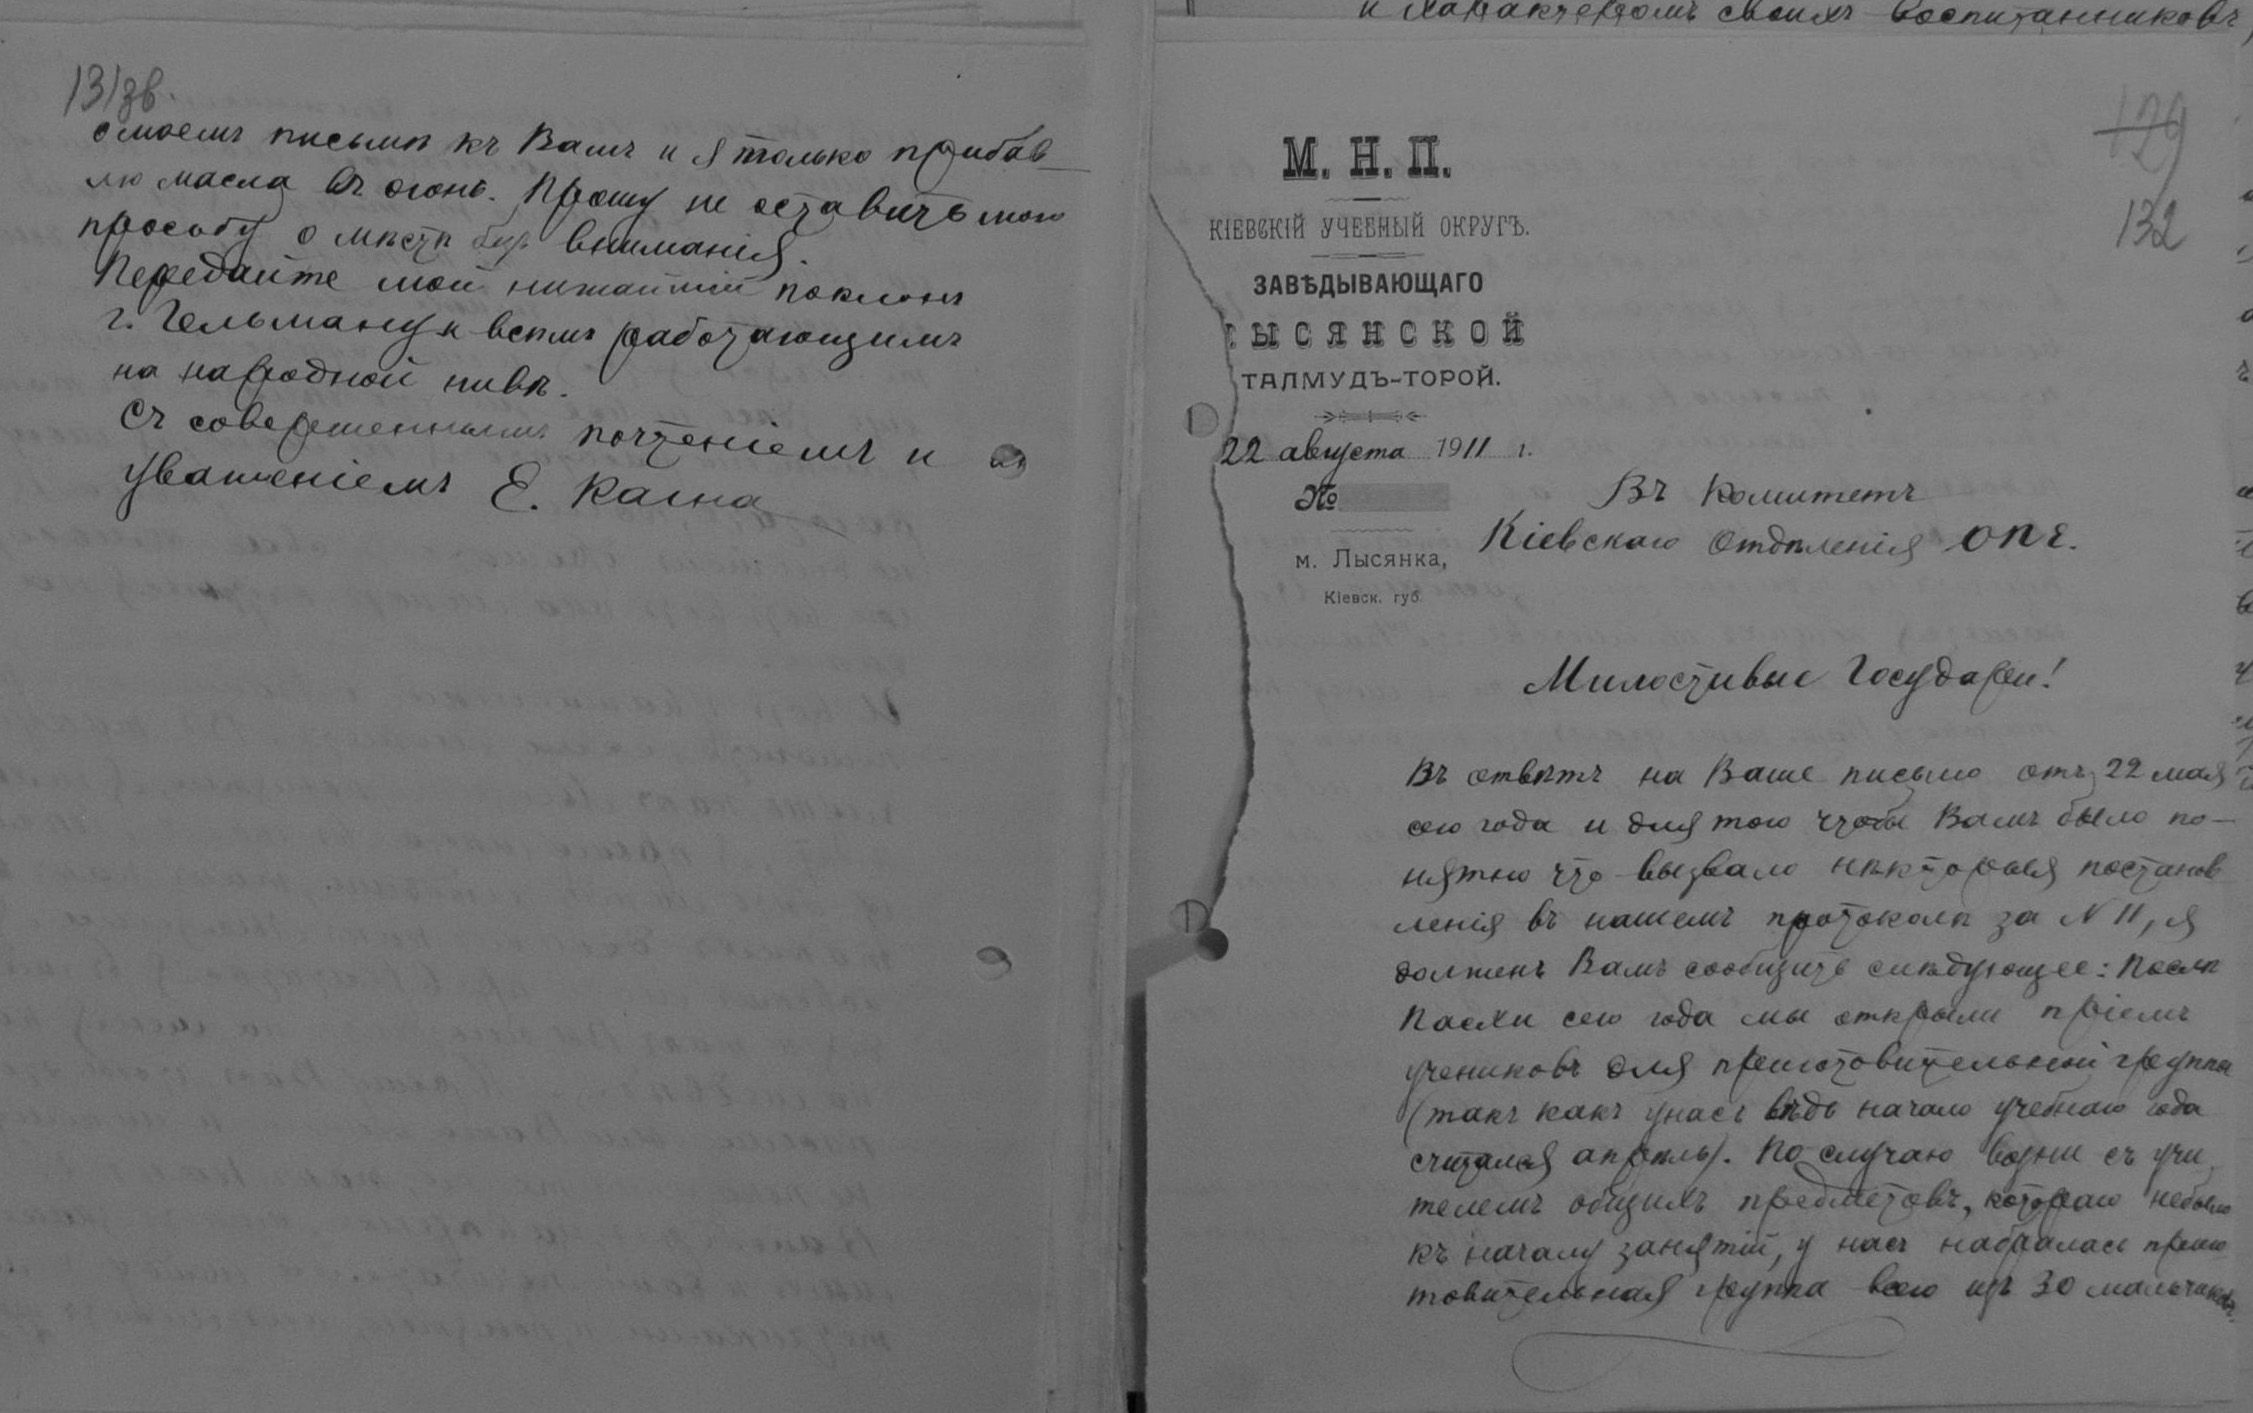 131зв.
о моемъ письмѣ къ Вамъ и я только прибав
лю масла въ огонь. Прошу не оставить мою
просьбу о мѣстѣ безъ вниманія.
Передайте мой нижайшій поклонъ
г. Гельману и всѣмъ работающимъ
на народной нивѣ.
Съ совершеннымъ почтеніемъ и
уваженіемъ Е. Кагна
и характеромъ своихъ воспитанниковъ,
129
132
М. Н. П.
КІЕВСКІЙ УЧЕБНЫЙ ОКРУГЪ.
ЗАВѢДЫВАЮЩАГО
ЫСЯНСКОЙ
ТАЛМУДЪ-ТОРОЙ.
22 августа 1911 г.
№
м. Лысянка,
Кіевск. губ.
Въ Комитетъ
Кіевскаго Отдѣленія ОПЕ.
Милостивые Государи!
Въ отвѣтъ на Ваше письмо отъ 22 мая
сего года и для того чтобы Вамъ было по-
нятно что вызвало нѣкоторыя постанов
ленія въ нашемъ протоколѣ за N 11, я
долженъ Вамъ сообщить слѣдующее: Послѣ
Пасхи сего года мы открыли пріемъ
учениковъ для приготовительной группы
(такъ какъ у насъ вѣдь начало учебнаго года
считался апрѣль). По случаю возни съ учи
телемъ общихъ предметовъ, котораго небыло
къ началу занятій, у насъ набралась приго
товительная группа всего изъ 30 мальчиковъ.